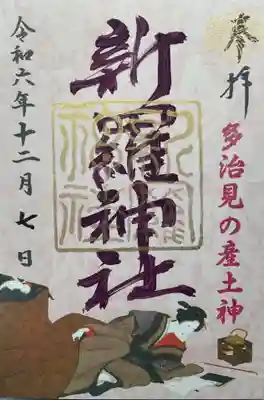 奉拝
多治見の産土神
新羅神社
令和六年十二月七日
新羅神社